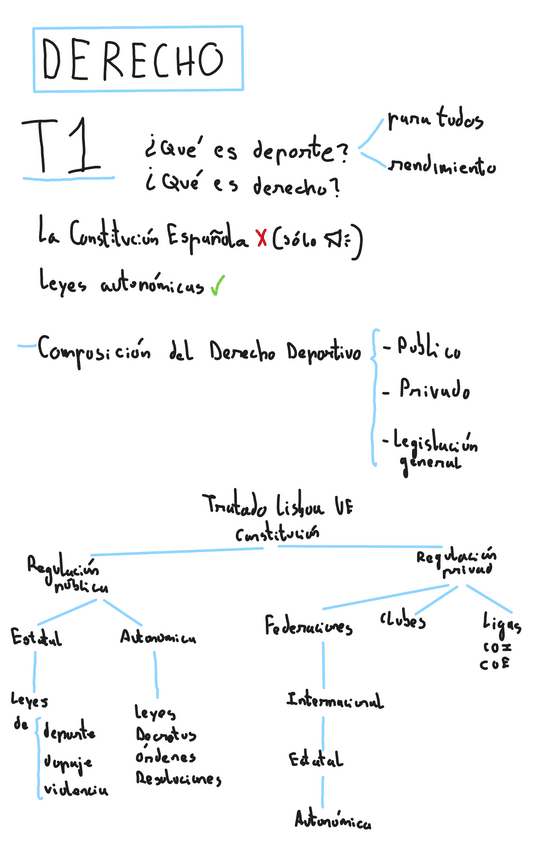 DERECHO
T1
¿Qué es deporte?
para todos
rendimiento
¿Qué es derecho?
La Constitución Española X (sólo
Leyes autonómicas ✓
Composición del Derecho Deportivo
- Público
- Privado
- Legislación
general
Tratado Lisboa UE
Constitución
Regulación
pública
Estatal
Leyes
de
deporte
dopaje
violencia
Autonómica
Leyes
Decretos
Órdenes
Resoluciones
Regulación
privad
Federaciones
Internacional
Estatal
Autonómica
Clubes
Ligas
COI
COE